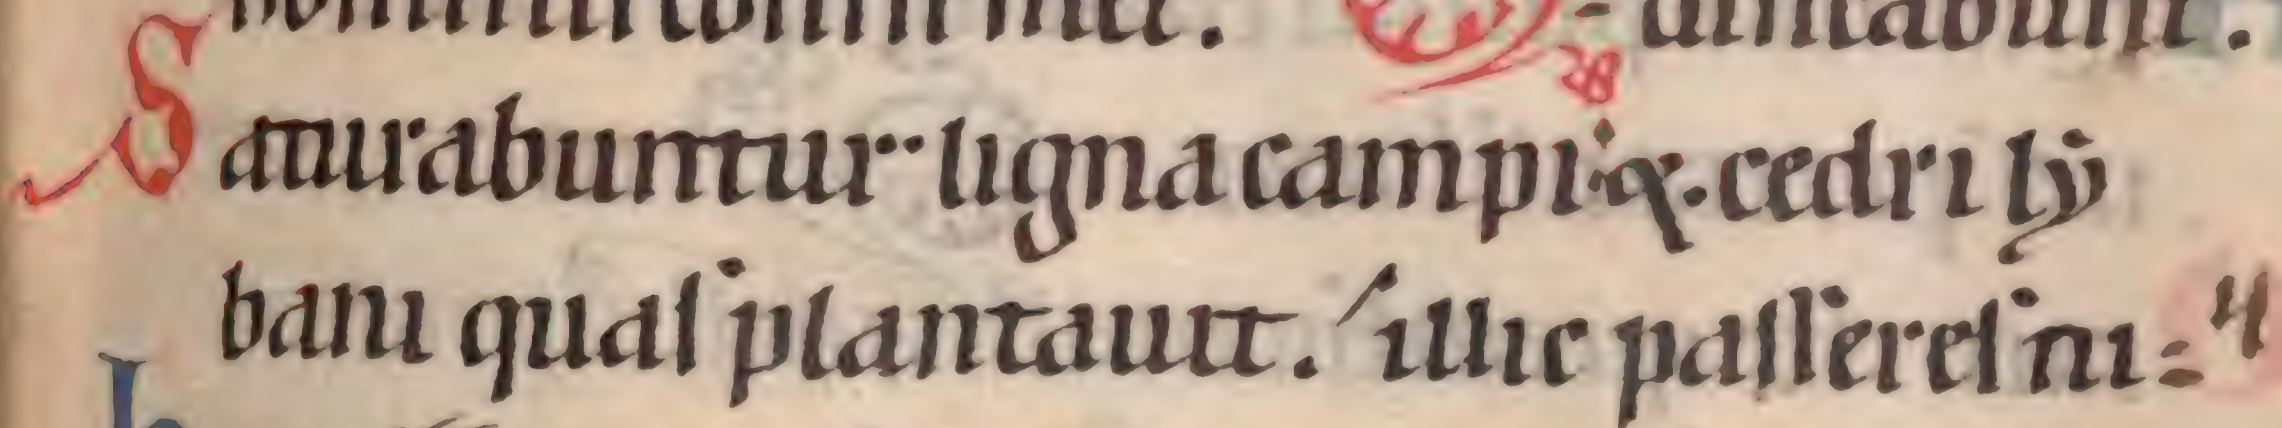 Saturabuntur ligna campi & cedri ly
bani quas plantauit. illic passeres ni=